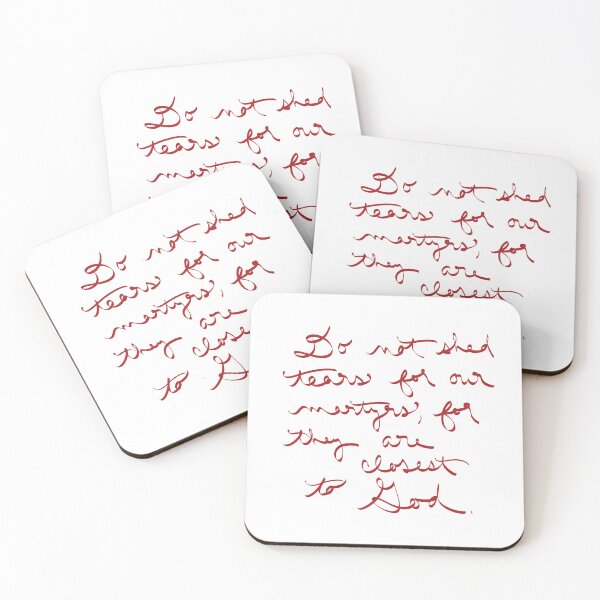 Do not shed
tears for our
for
Do not shed
tears for our
mertyrs, for
they are
closest
Do not shed
tears for our
mertyrs, for
they are
to
Do not shed
tears for our
mertyrs, for
they are
closest
to God.